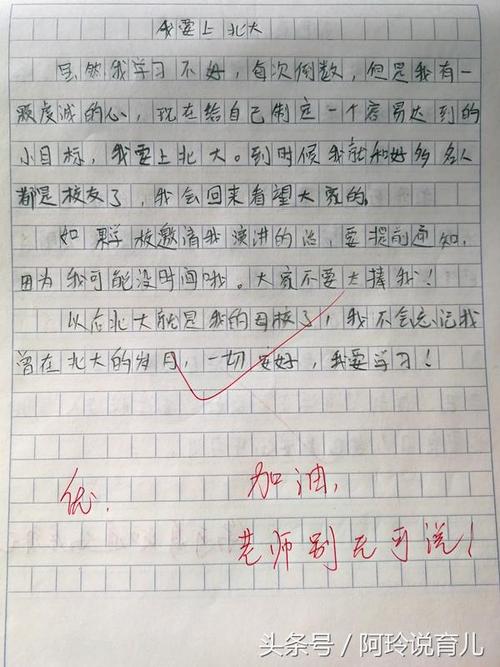 我要上北大
虽然我学习不好，每次倒数，但是我有一
颗虔诚的心，现在给自己制定一个容易达到的
小目标，我要上北大。到时候我就和好多名人
都是校友了，我会回来看望大家的。
如果学校邀请我演讲的话，要提前通知，
因为我可能没时间哦。大家不要太捧我！
以后北大就是我的母校了，我不会忘记我
曾在北大的岁月，一切安好，我要学习！
优.
加油，
老师别无可说！
头条号/阿玲说育儿